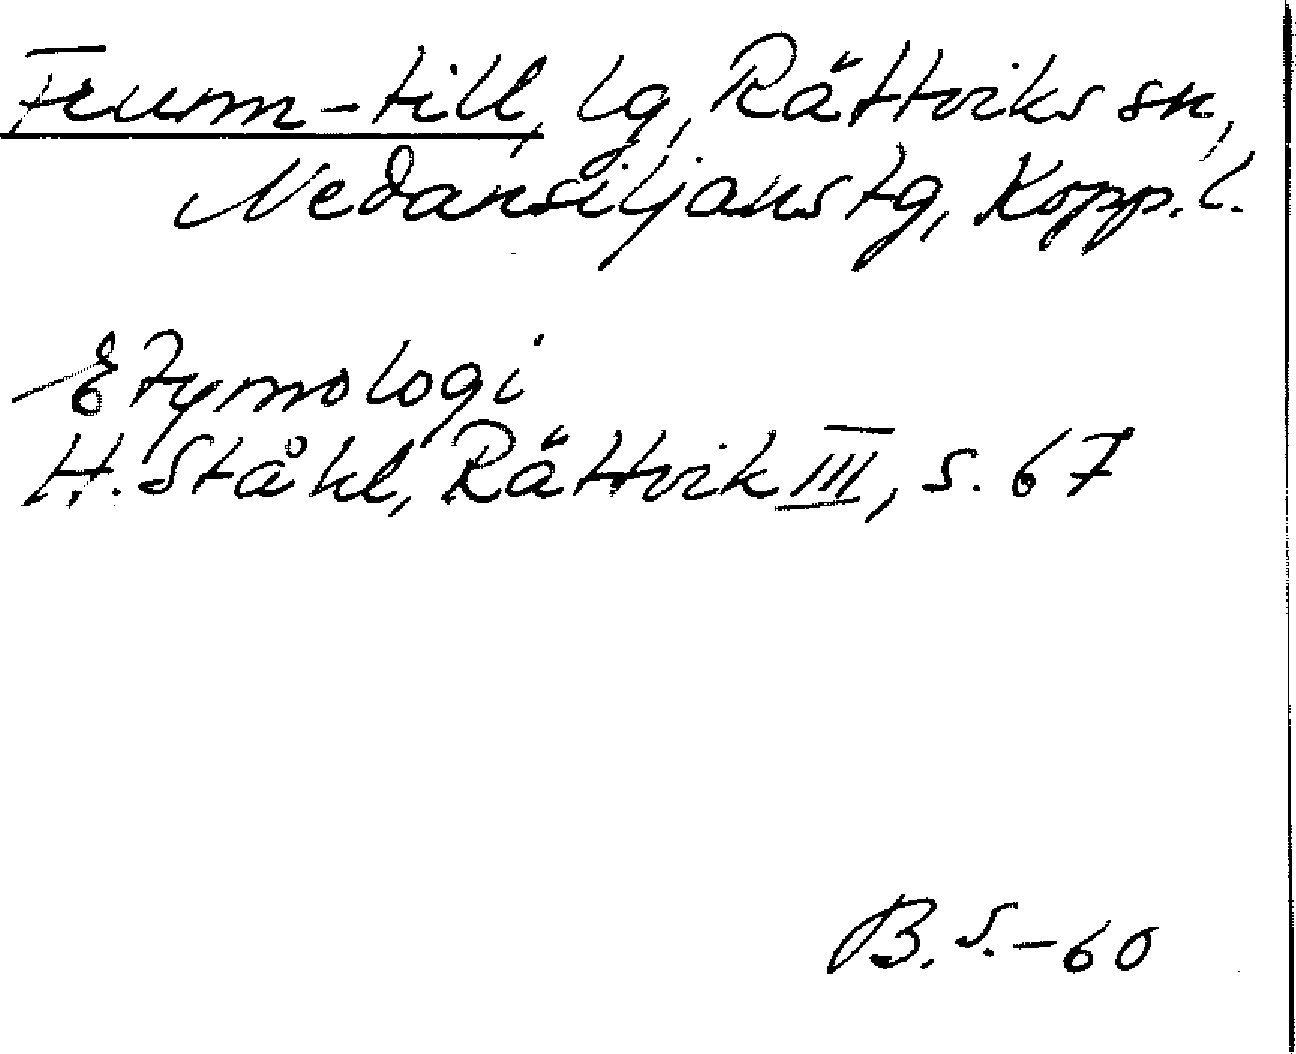 Frum-till, lg, Rättviks sn,
Nedansiljans tg, Kopp. l.
Etymologi
H. Ståhl, Rättvik III, s. 67
B. S. - 60